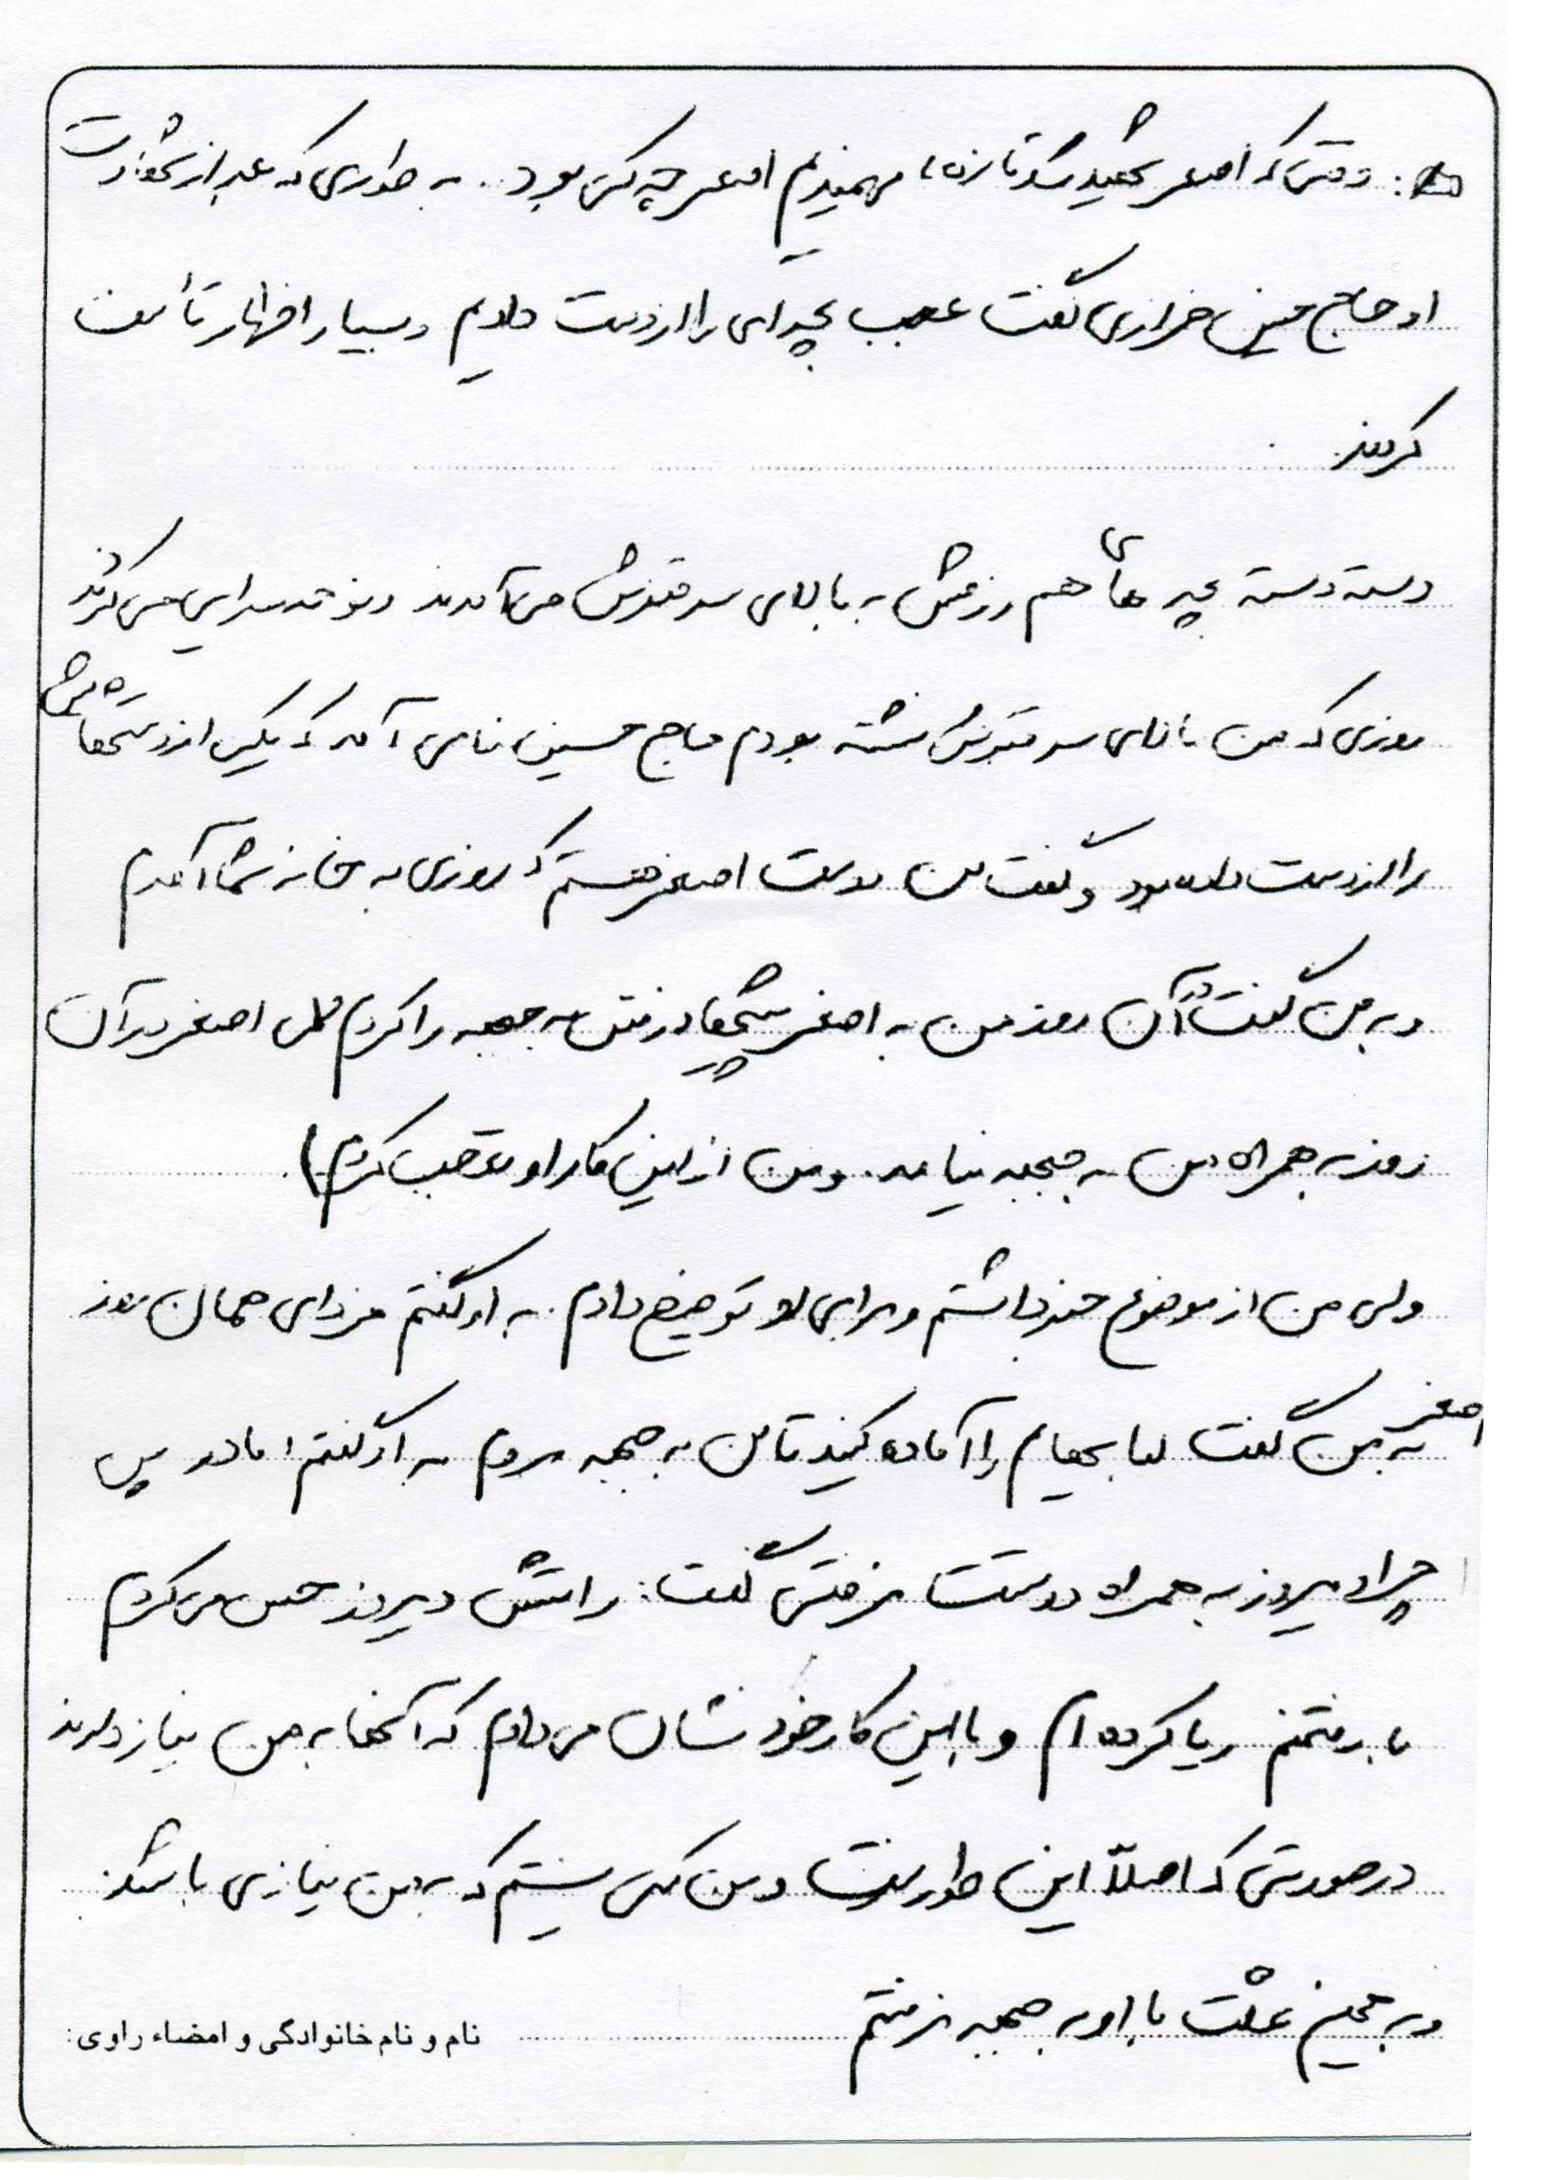 ج: وقتی که اصغر شهید شد تازه ما فهمیدیم اصغر چه کسی بود. به طوری که بعد از شهادت
او حاج حسین خرازی گفت عجب بچه ای را از دست دادیم و بسیار اظهار تأسف
کردند.
دسته دسته بچه های هم رزمش به بالای سر قبرش می آمدند و نوحه سرایی می کردند
روزی که من بالای سر قبرش نشسته بودم حاج حسین نامی آمد که یکی از دستهایش
را از دست داده بود و گفت من دوست اصغر هستم که روزی به خانه شما آمدم
و به من گفت در آن روز من به اصغر پیشنهاد رفتن به جبهه را کردم ولی اصغر در آن
روز به همراه من به جبهه نیامد. و من از این کار او تعجب کردم).
ولی من از موضوع خبر داشتم و برای او توضیح دادم. به او گفتم فردای همان روز
اصغر به من گفت لباسهایم را آماده کنید تا من به جبهه بروم به او گفتم: مادر پس
چرا دیروز به همراه دوستت نرفتی گفت: راستش دیروز حس می کردم
با رفتنم ریا کرده ام و با این کار خود نشان می دادم که آنها به من نیاز دارند
در صورتی که اصلاً این طور نیست و من کسی نیستم که به من نیازی باشد.
و به همین علت با او به جبهه نرفتم
نام و نام خانوادگی و امضاء راوی: